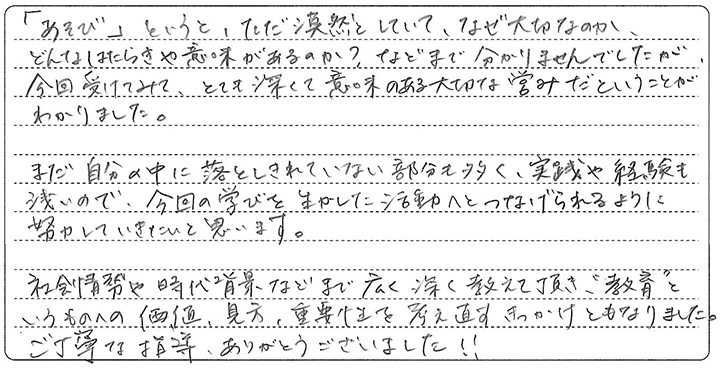 「あそび」というと、ただ漠然としていて、なぜ大切なのか、
どんなはたらきや意味があるのか？などまで分かりませんでしたが、
今回受けてみて、とても深くて意味のある大切な営みだということが
わかりました。
まだ自分の中に落としきれていない部分も多く、実践や経験も
浅いので、今回の学びを生かした活動へとつなげられるように
努力していきたいと思います。
社会情勢や時代背景などまで広く深く教えて頂き、"教育"と
いうものへの価値、見方、重要性を考え直すきっかけともなりました。
ご丁寧な指導、ありがとうございました!!